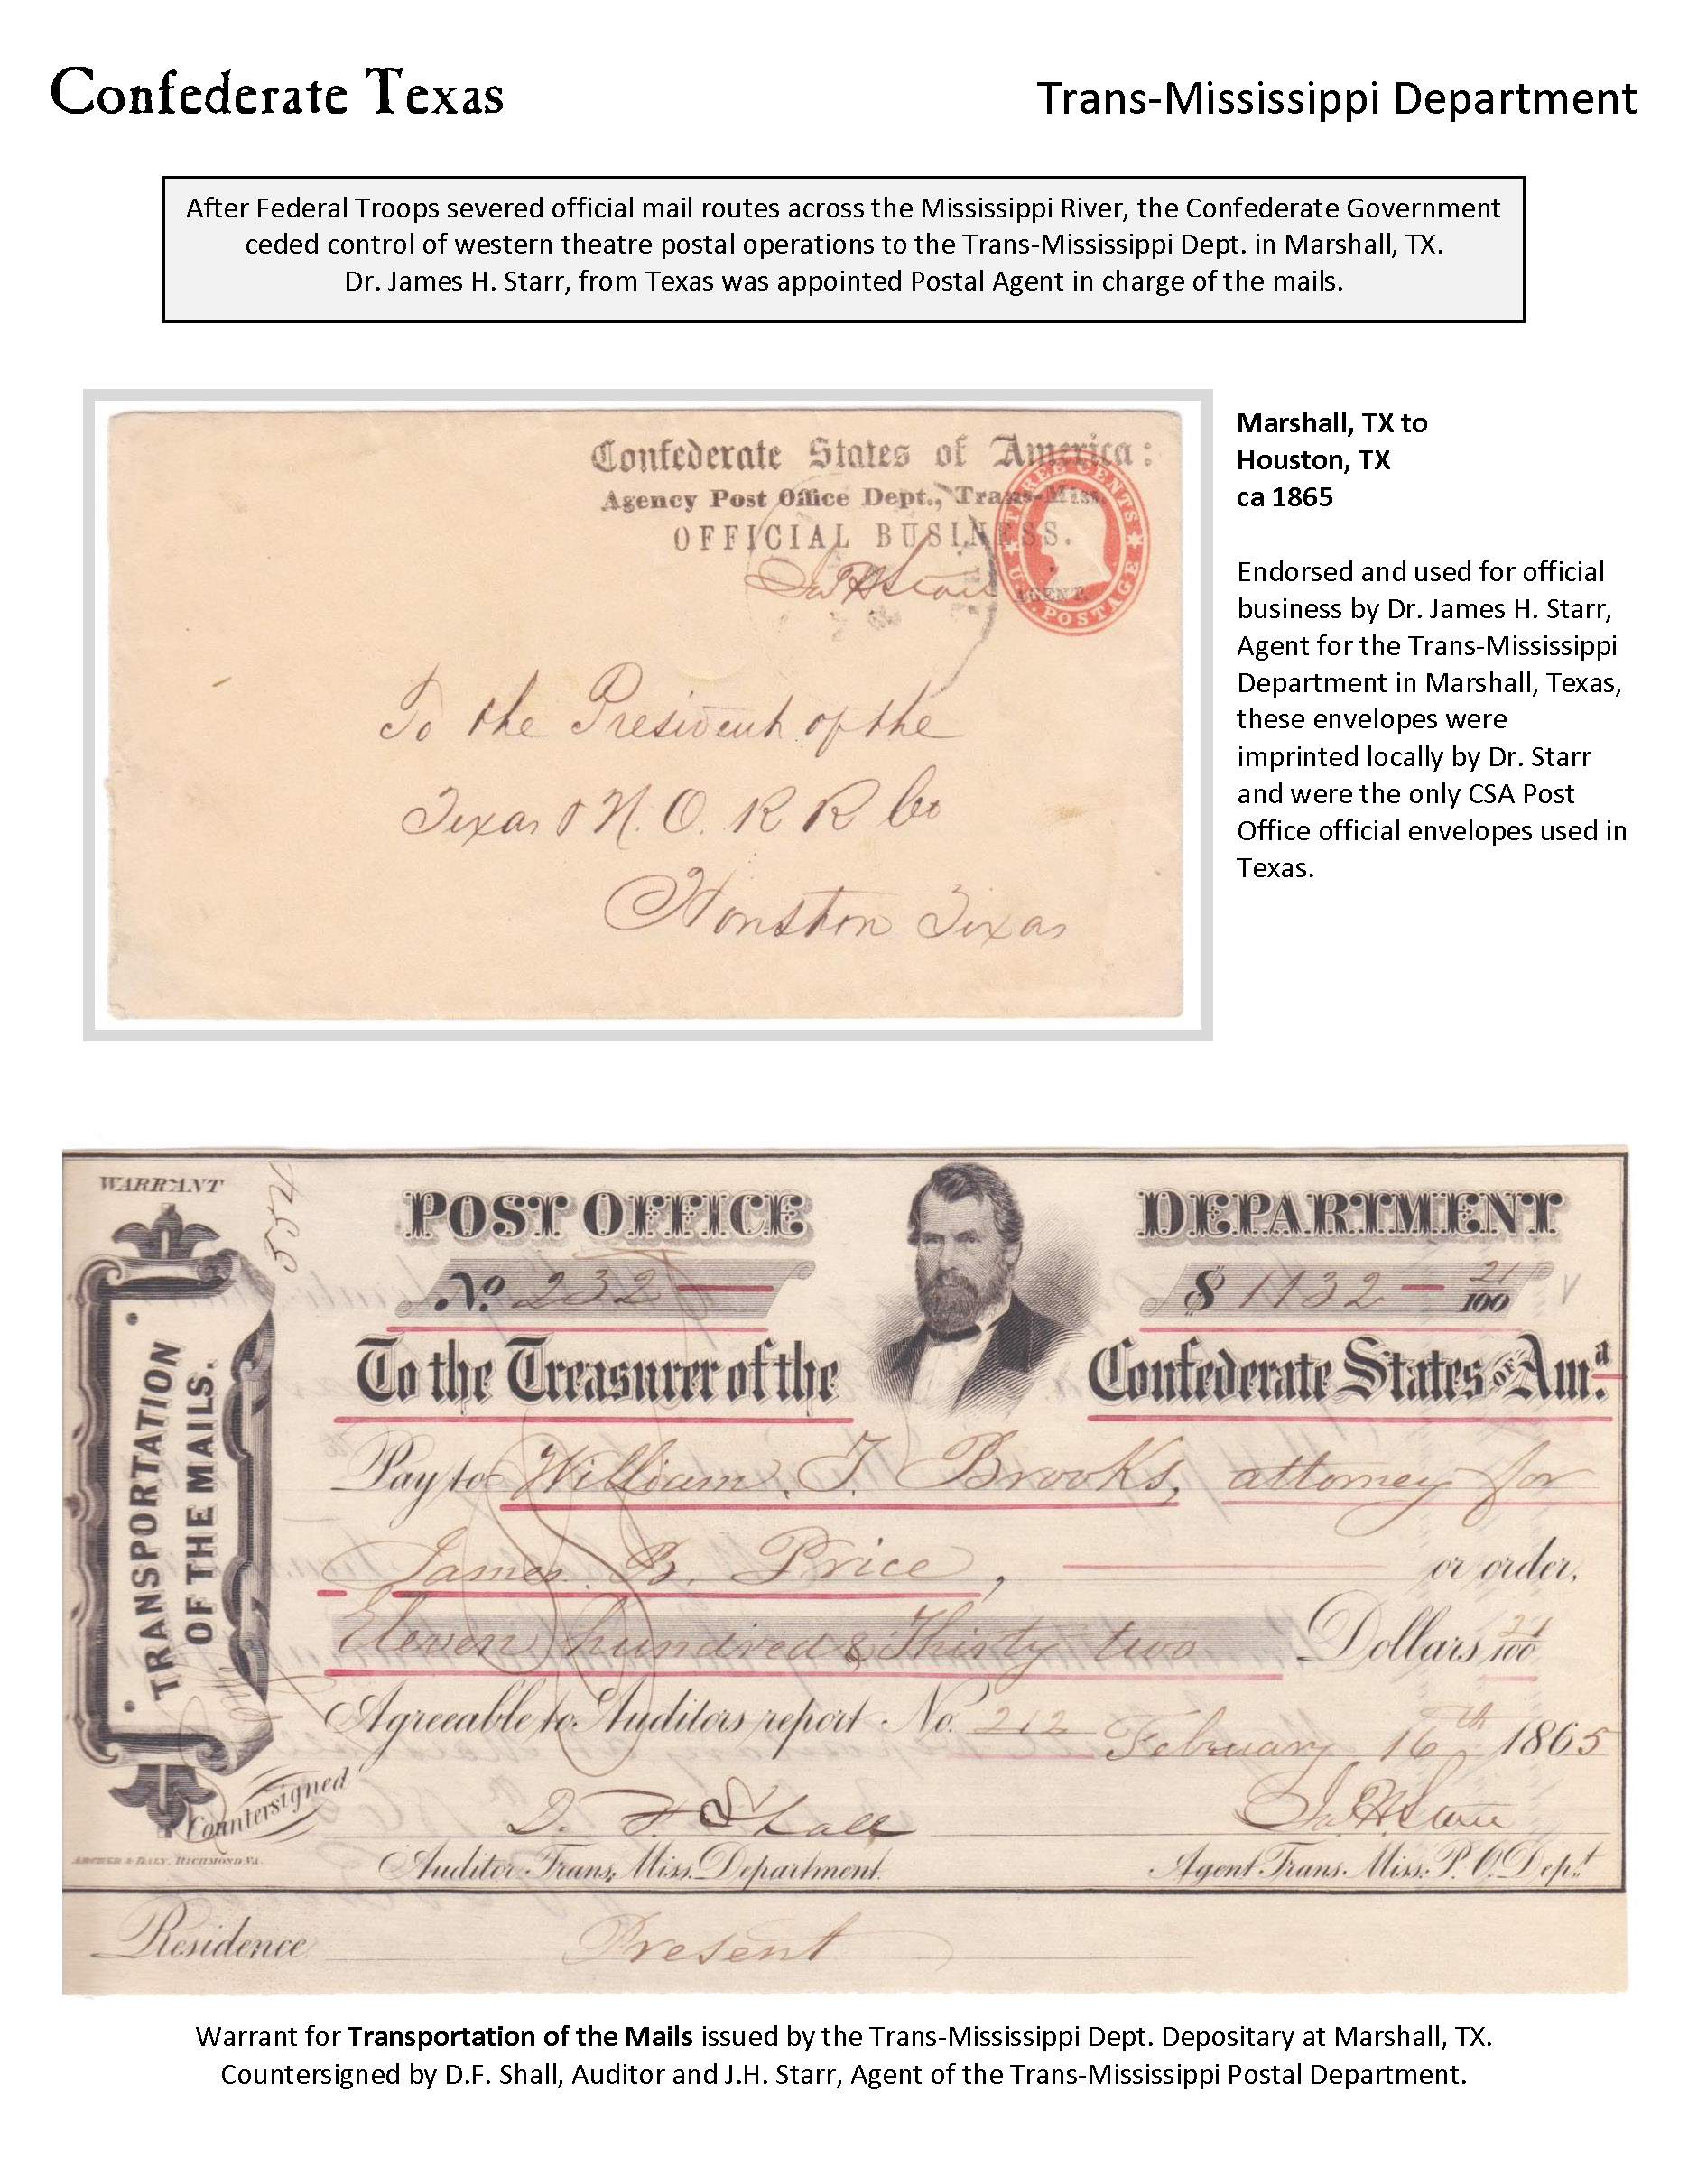 Confederate Texas
Trans-Mississippi Department
After Federal Troops severed official mail routes across the Mississippi River, the Confederate Government
ceded control of western theatre postal operations to the Trans-Mississippi Dept. in Marshall, TX.
Dr. James H. Starr, from Texas was appointed Postal Agent in charge of the mails.
Confederate States of America:
Agency Post Office Dept., Trans-Miss.
OFFICIAL BUSINESS.
Jas H Starr
AGENT.
THREE CENTS
U.S. POSTAGE
To the President of the
Texas & N. O. R R Co
Houston Texas
Marshall, TX to
Houston, TX
ca 1865
Endorsed and used for official
business by Dr. James H. Starr,
Agent for the Trans-Mississippi
Department in Marshall, Texas,
these envelopes were
imprinted locally by Dr. Starr
and were the only CSA Post
Office official envelopes used in
Texas.
WARRANT
554
TRANSPORTATION
OF THE MAILS.
POST OFFICE DEPARTMENT
No. 232 $ 1132 - 21/100
To the Treasurer of the Confederate States of Ama.
Pay to William T. Brooks, attorney for
James B. Price, or order,
Eleven hundred & Thirty two Dollars 21/100
Agreeable to Auditors report No. 212 February 16th 1865
Countersigned
D. F. Shall Jas H Starr
Auditor Trans. Miss. Department. Agent Trans. Miss. P. O. Dept.
ARCHER & DALY, RICHMOND VA.
Residence Present
Warrant for Transportation of the Mails issued by the Trans-Mississippi Dept. Depositary at Marshall, TX.
Countersigned by D.F. Shall, Auditor and J.H. Starr, Agent of the Trans-Mississippi Postal Department.